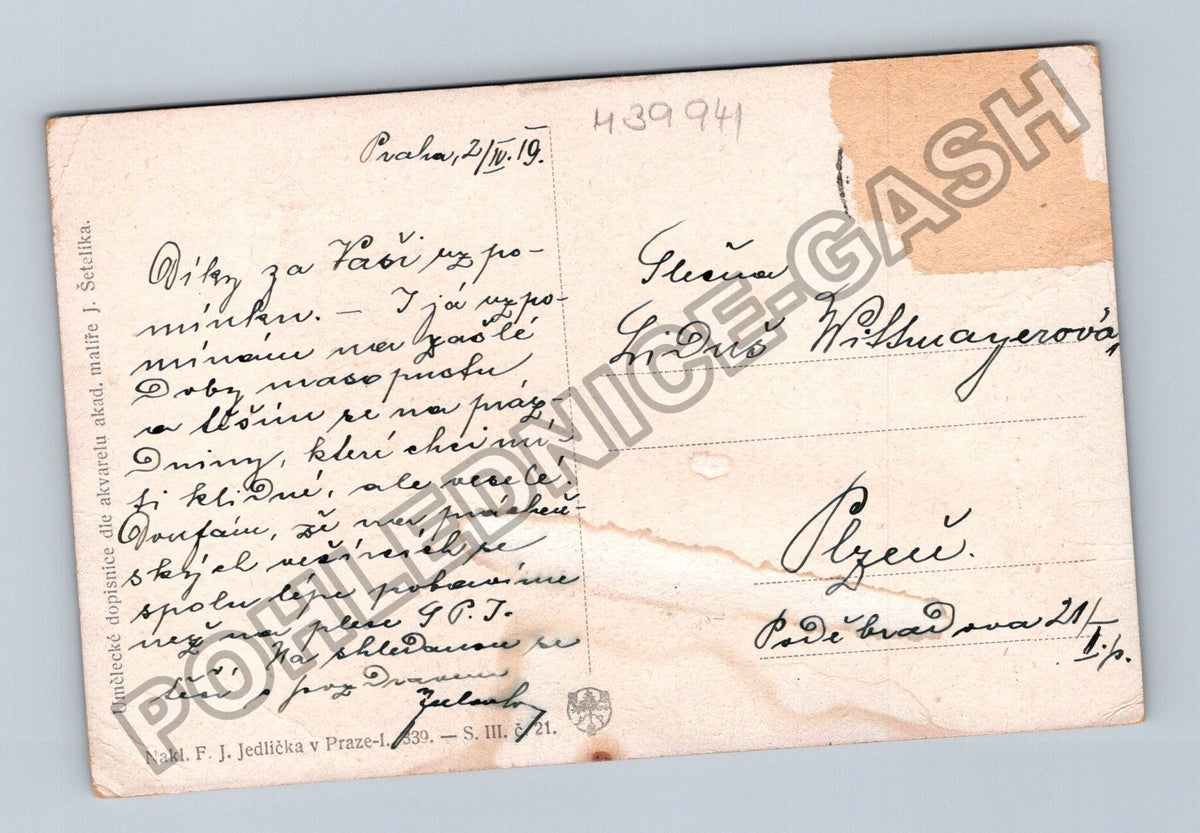 439941
Praha, 2/IV. 19.
Díky za Vaši vzpo-
mínku. – I já vzpo-
mínám na zašlé
doby masopustu
a těším se na práz-
dniny, které chci mí-
ti klidné, ale veselé.
Doufám, že na
ských večírcích se
spolu lépe pobavíme
než na plese
Na shledanou se
těší s pozdravem
Slečna
Liduš Wittmayerová,
Plzeň.
Poděbradova 21/I.p.
Umělecké dopisnice dle akvarelu akad. malíře J. Šetelíka.
Nakl. F. J. Jedlička v Praze-I. 339. — S. III. č. 21.
POHLEDNICE-GASH